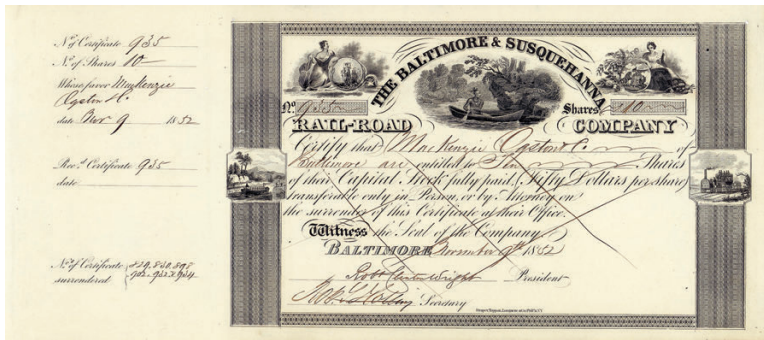 No. of Certificate 935
No. of Shares 10
Whose favor MacKenzie
Oyston &
date Nov 9 1852
Rec.d Certificate 935
date
No. of Certificate 829.830.898
surrendered 902. 933 & 934
THE BALTIMORE & SUSQUEHANNA
No. 935 Shares 10
RAIL-ROAD COMPANY
Certify that MacKenzie Oyston & C. of
Baltimore are entitled to Ten Shares
of their Capital Stock fully paid, Fifty Dollars per share
transferable only in Person, or by Attorney on
the surrender of this Certificate at their Office.
Witness the Seal of the Company
BALTIMORE November 9th 1852
Wright President
Secretary